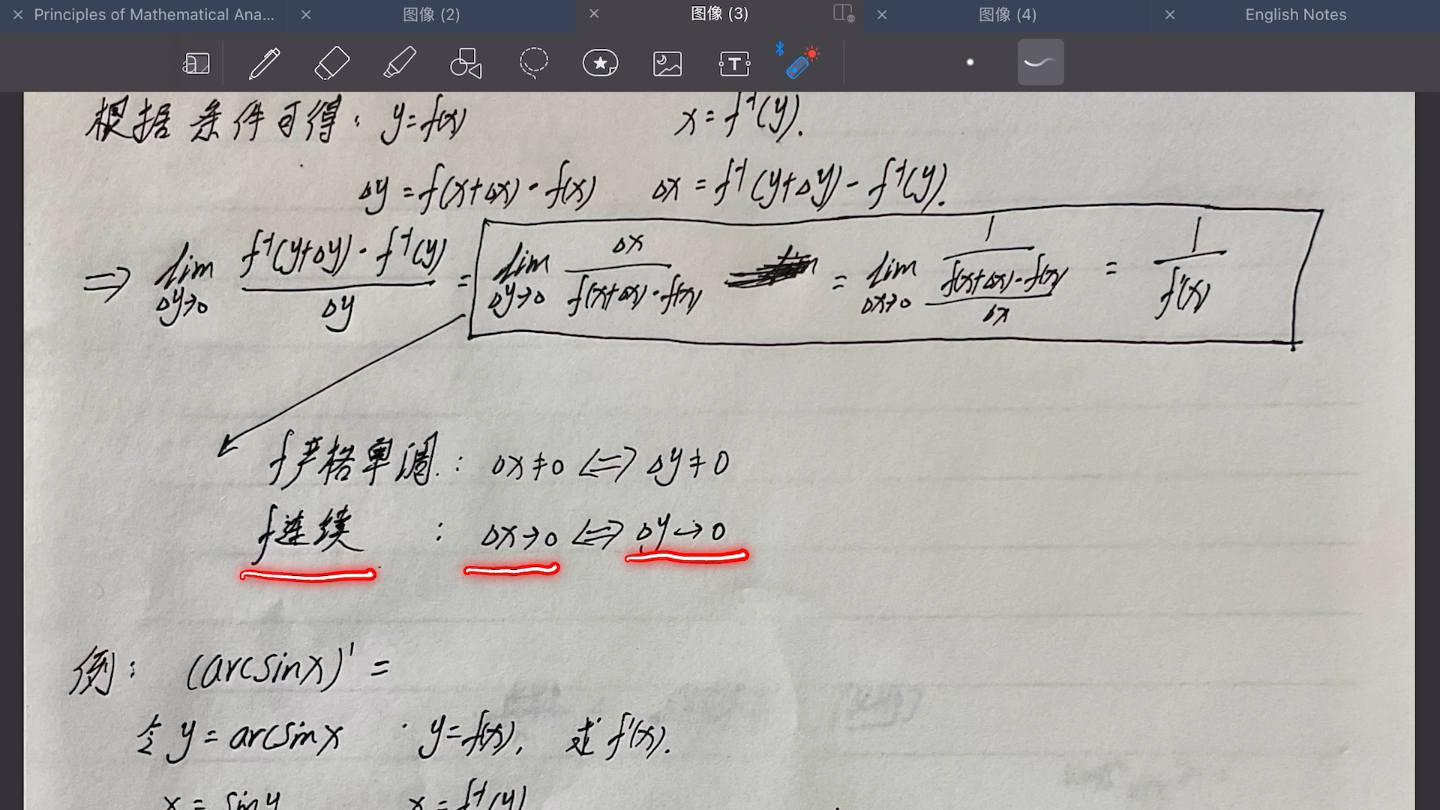 Principles of Mathematical Ana... 图像 (2) 图像 (3) 图像 (4) English Notes
根据条件可得: y=f(x) x=f⁻¹(y).
Δy=f(x+Δx)-f(x) Δx=f⁻¹(y+Δy)-f⁻¹(y).
⇒ lim_{Δy→0} (f⁻¹(y+Δy)-f⁻¹(y))/Δy = lim_{Δy→0} Δx/(f(x+Δx)-f(x)) = lim_{Δx→0} 1/((f(x+Δx)-f(x))/Δx) = 1/f'(x)
f严格单调: Δx≠0 ⇔ Δy≠0
f连续: Δx→0 ⇔ Δy→0
例: (arcsinx)'=
令 y=arcsinx y=f(x), 求f'(x).
x=siny x=f⁻¹(y)